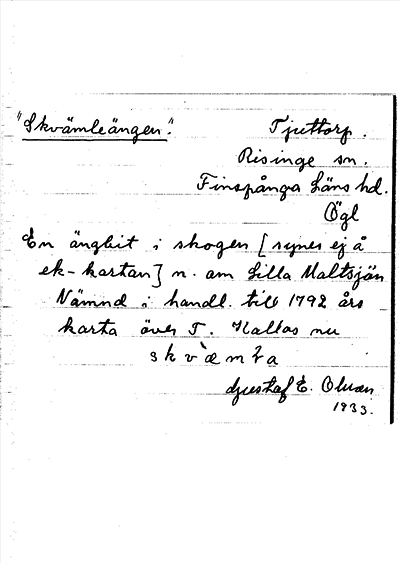 "Skvämleängen". Tjuttorp.
Risinge sn.
Finspånga Läns hd.
Ögl
En ängbit i skogen [synes ej å
ek-kartan] n. om Lilla Maltsjön
Nämnd i handl. till 1792 års
karta över T. Kallas nu
Gustaf E. Olsson
1933.